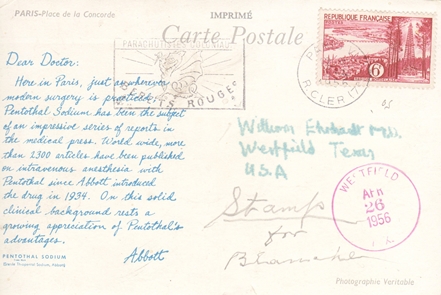 PARIS-Place de la Concorde
IMPRIMÉ
Carte Postale
RÉPUBLIQUE FRANÇAISE
POSTES
6F
PARACHUTISTES COLONIAUX
BÉRETS ROUGES
R.CLER (7
Dear Doctor:
Here in Paris, just as wherever
modern surgery is practiced,
Pentothal Sodium has been the subject
of an impressive series of reports in
the medical press. World wide, more
than 2300 articles have been published
on intravenous anesthesia with
Pentothal since Abbott introduced
the drug in 1934. On this solid
clinical background rests a
growing appreciation of Pentothal's
advantages.
Abbott
PENTOTHAL SODIUM
William Ehrhardt M.D.
Westfield Texas
USA
WESTFIELD
APR
26
1956
Stamps
for
Blanche
Photographie Veritable